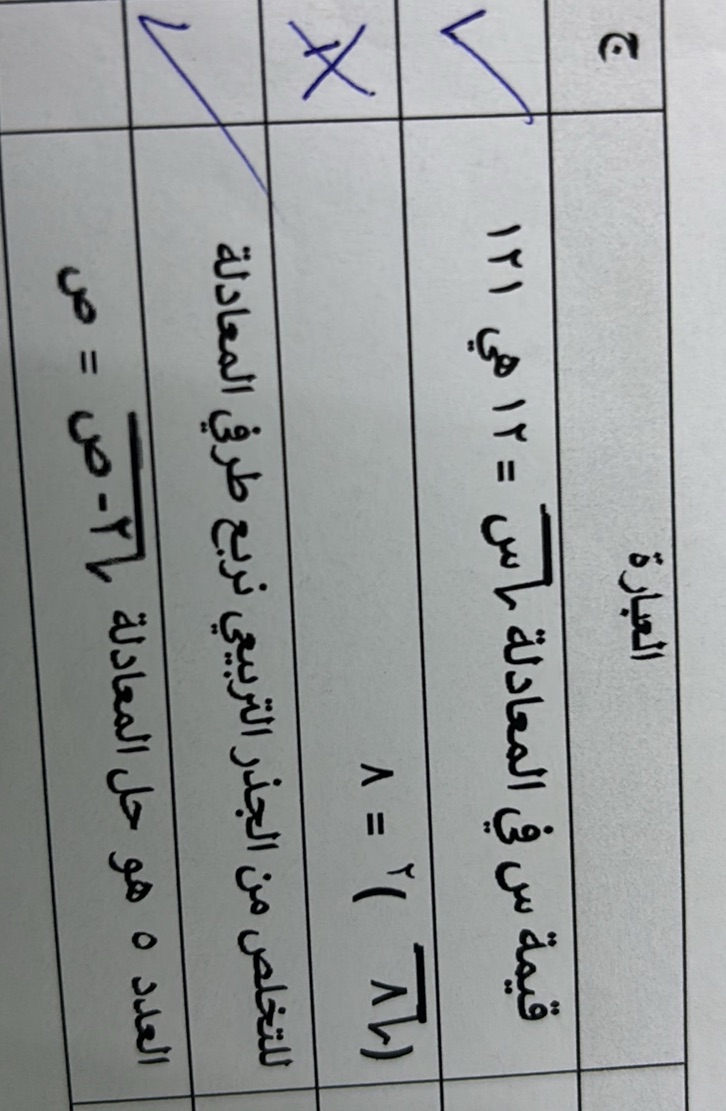 العبارة	ج
قيمة س في المعادلة √س = ١٢ هي ١٢١	✓
(√٨)٢ = ٨	X
للتخلص من الجذر التربيعي نربع طرفي المعادلة	✓
العدد ٥ هو حل المعادلة √٢-ص = ص